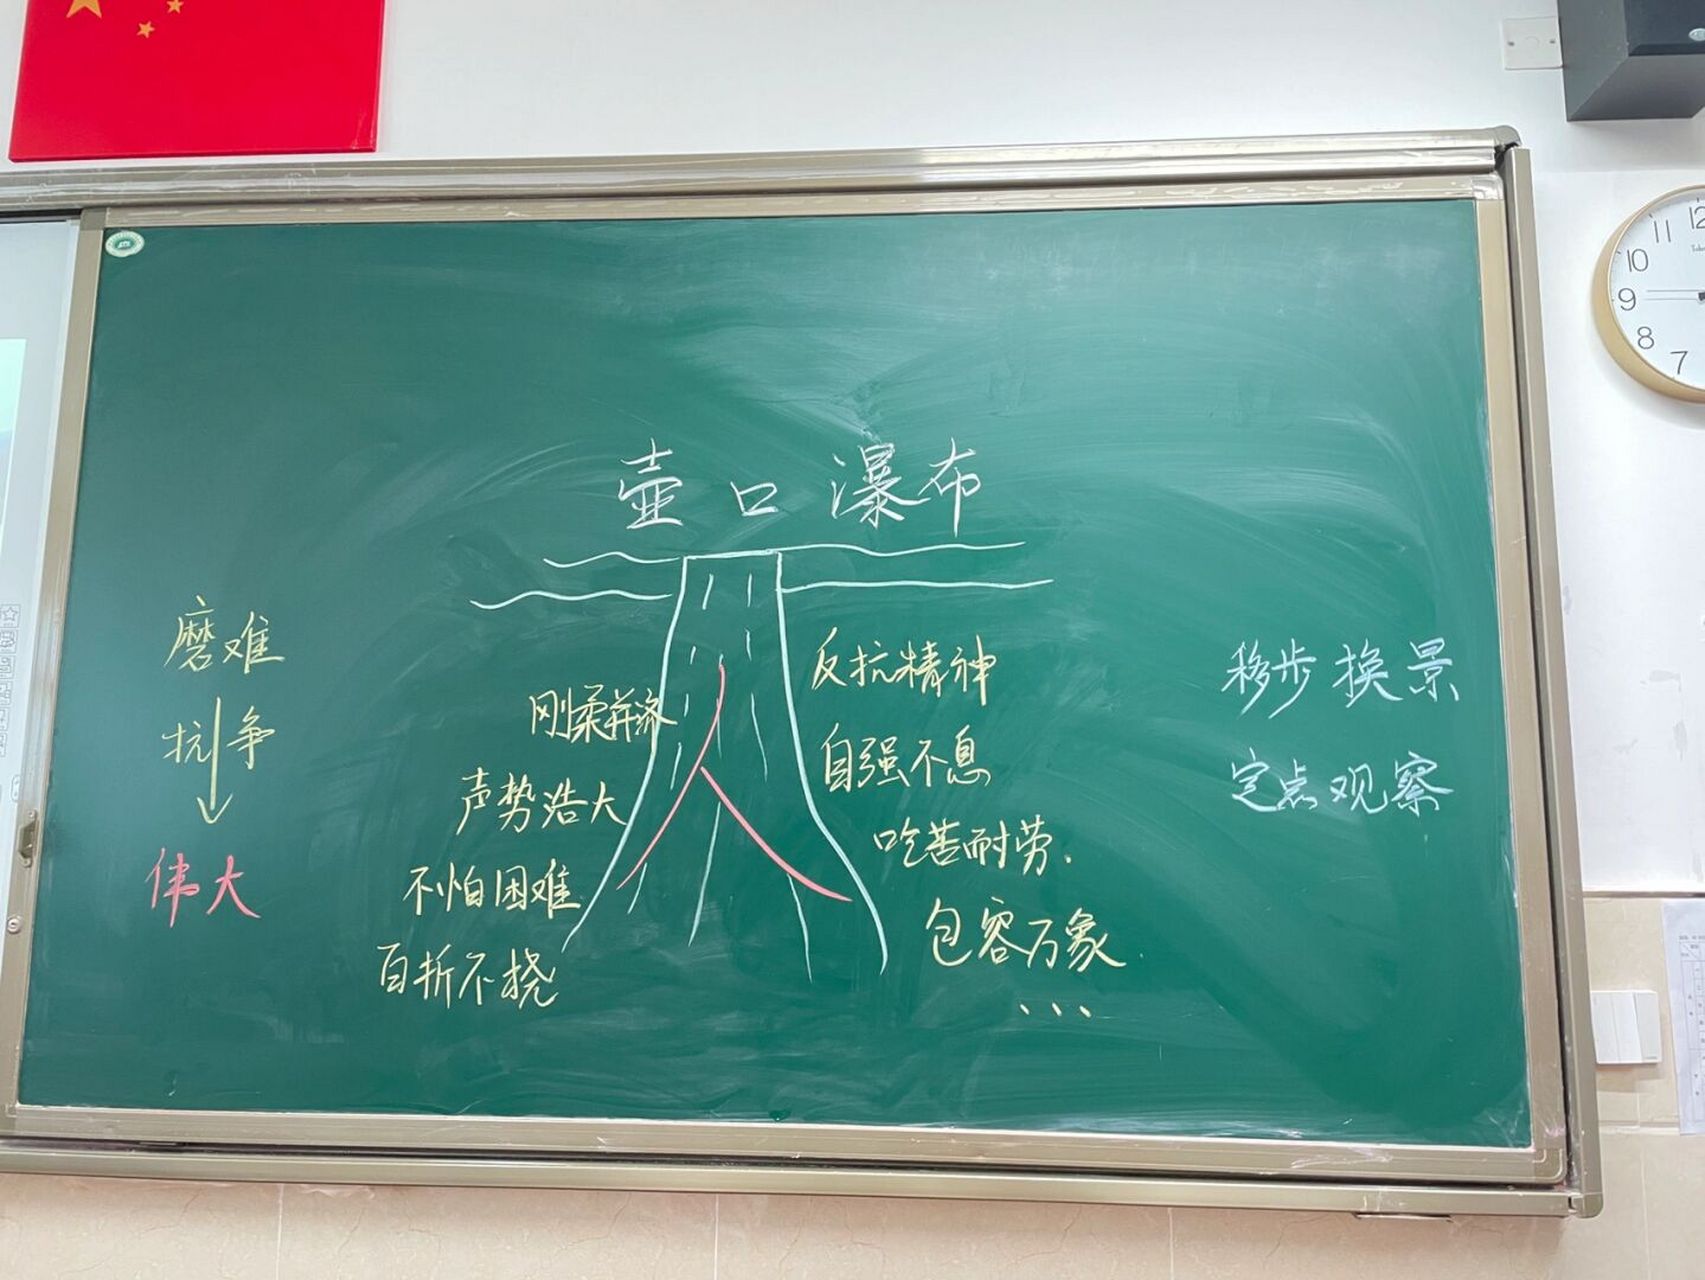 壶口瀑布
磨难
抗争
伟大
刚柔并济
声势浩大
不怕困难
百折不挠
人
反抗精神
自强不息
吃苦耐劳.
包容万象
...
移步换景
定点观察
12
11
10
9
8
7